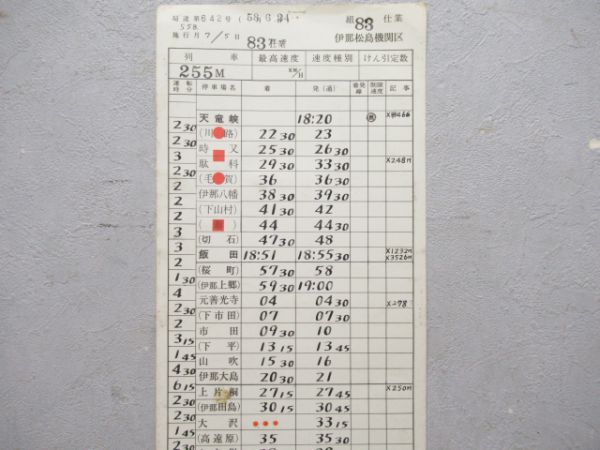 局達第642号 (58.6.24)
558
施行月 7/5日 組83仕業
83仕業 伊那松島機関区
列 車 最高速度 速度種別 けん引定数
255M KM/H
運転時分 停車場名 着 発(通) 着発線 制限速度 記事
天竜峡 18:20
2 30 (川路) 22 30 23
2 30 時又 25 30 26 30
3 駄科 29 30 33 30 X248m
2 30 (毛賀) 36 36 30
2 伊那八幡 38 30 39 30
2 (下山村) 41 30 42
2 44 44 30
3 (切石) 47 30 48
3 飯田 18:51 18:55 30 X1232m X3526m
2 (桜町) 57 30 58
1 30 (伊那上郷) 59 30 19:00
4 元善光寺 04 04 30 X278
2 30 (下市田) 07 07 30
2 市田 09 30 10
3 15 (下平) 13 15 13 45
1 45 山吹 15 30 16
4 30 伊那大島 20 30 21
6 15 上片桐 27 15 27 45 X250m
2 30 (伊那田島) 30 15 30 45
2 30 大沢 33 15
(高遠原) 35 35 30